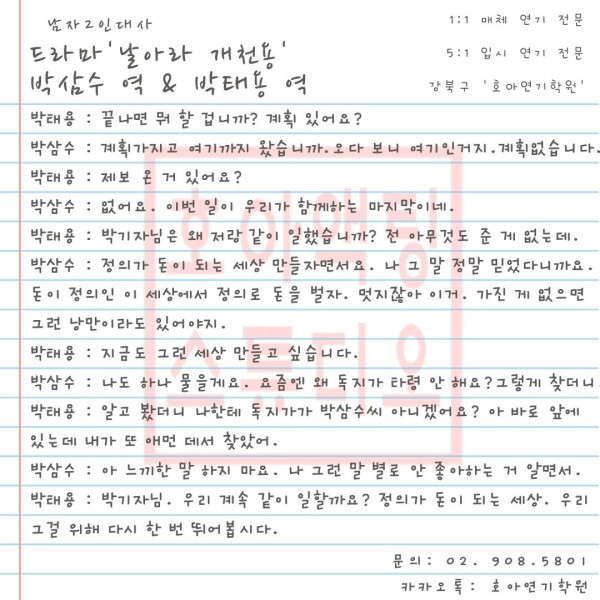 남자2인대사
1:1 매체 연기 전문
드라마'날아라 개천용'
5:1 입시 연기 전문
박삼수 역 & 박태용 역
강북구 '호아연기학원'
박태용 : 끝나면 뭐 할 겁니까? 계획 있어요?
박삼수 : 계획가지고 여기까지 왔습니까.오다 보니 여기인거지.계획없습니다.
박태용 : 제보 온 거 있어요?
박삼수 : 없어요. 이번 일이 우리가 함께하는 마지막이네.
박태용 : 박기자님은 왜 저랑 같이 일했습니까? 전 아무것도 준 게 없는데.
박삼수 : 정의가 돈이 되는 세상 만들자면서요. 나 그 말 정말 믿었다니까요.
돈이 정의인 이 세상에서 정의로 돈을 벌자. 멋지잖아 이거. 가진 게 없으면
그런 낭만이라도 있어야지.
박태용 : 지금도 그런 세상 만들고 싶습니다.
박삼수 : 나도 하나 물을게요. 요즘엔 왜 독지가 타령 안 해요?그렇게 찾더니.
박태용 : 알고 봤더니 나한테 독지가가 박삼수씨 아니겠어요? 아 바로 앞에
있는데 내가 또 애먼 데서 찾았어.
박삼수 : 아 느끼한 말 하지 마요. 나 그런 말 별로 안 좋아하는 거 알면서.
박태용 : 박기자님. 우리 계속 같이 일할까요? 정의가 돈이 되는 세상. 우리
그걸 위해 다시 한 번 뛰어봅시다.
호아액팅
스튜디오
문의: 02. 908.5801
카카오톡: 호아연기학원